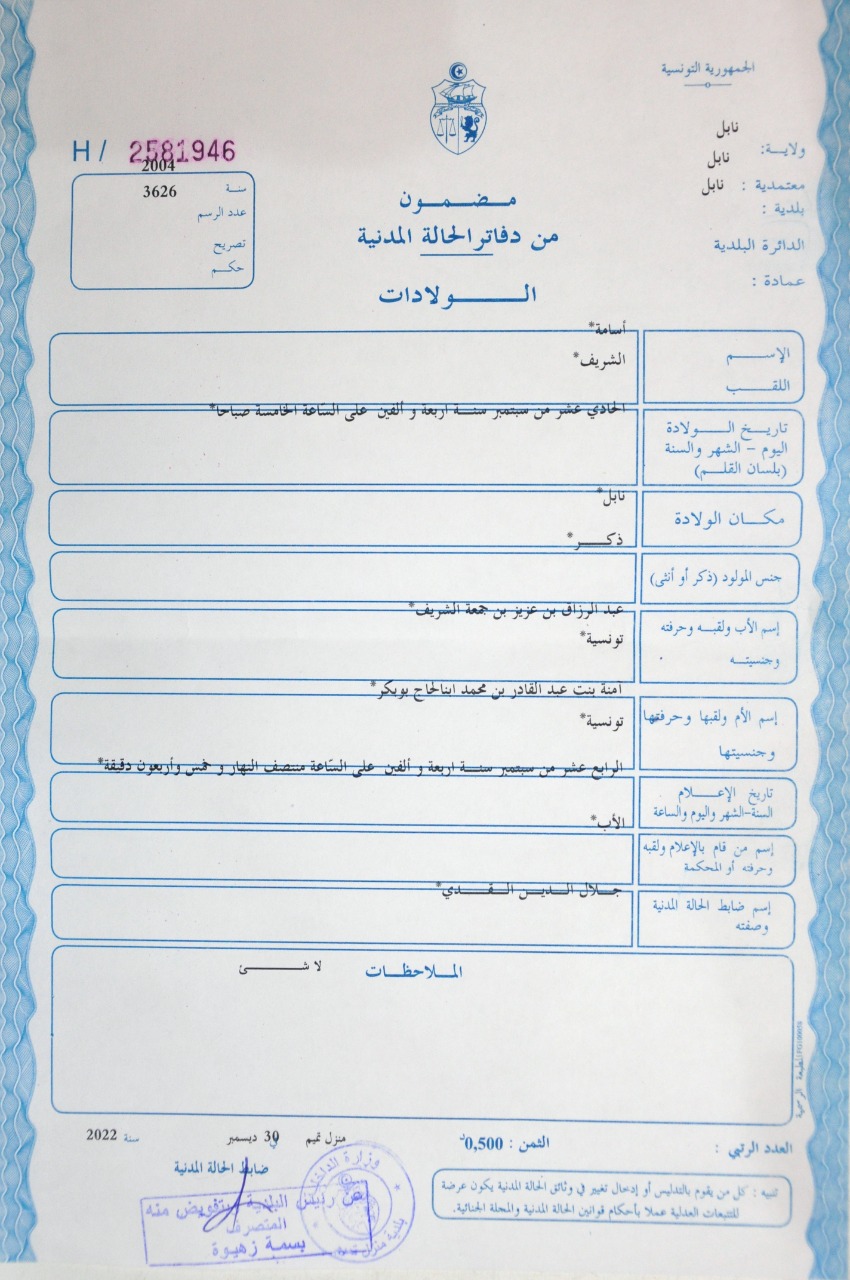 الجمهورية التونسية
نابل
ولايـــة:
نابل
معتمدية :
نابل
بلدية :
الدائرة البلدية
عمادة :
H / 2581946
2004
سنة
3626
عدد الرسم
تصريح
حكـم
مـضـمـون
من دفاتر الحالة المدنية
الـــولادات
أسامة*
الإســـم
الشريف*
اللقـــب
الحادي عشر من سبتمبر سنـــة اربعة و ألفين على السّاعة الخامسة صباحا*
تاريـــخ الـــولادة
اليوم – الشهر والسنة
(بلسان القلـــم)
نابل*
مكـــان الولادة
ذكـــر*
جنس المولود (ذكر أو أنثى)
عبد الرزاق بن عزيز بن جمعة الشريف*
إسم الأب ولقبـــه وحرفته
تونسية*
وجنسيتـــه
آمنة بنت عبد القادر بن محمد ابنالحاج بوبكر*
إسم الأم ولقبها وحرفتها
تونسية*
وجنسيتها
الرابع عشر من سبتمبر سنـــة اربعة و ألفين على السّاعة منتصف النهار و خمس وأربعون دقيقة*
تاريخ الإعـــلام
السنة-الشهر واليوم والساعة
الأب*
إسم من قام بالإعلام ولقبه
وحرفته أو المحكمة
جـــلال الـــديـــن الـــقـــدي*
إسم ضابط الحالة المدنية
وصفته
الملاحظات
لا شـــئ
المطبعة الرسمية
العدد الرتبي :
الثمن : 0,500د
منزل تميم
في 30 ديسمبر
سنة 2022
ضابط الحالة المدنية
تنبيه : كل من يقوم بالتدليس أو إدخال تغيير في وثائق الحالة المدنية يكون عرضة
للتتبعات العدلية عملا بأحكام قوانين الحالة المدنية والمجلة الجنائية.
عن رئيس البلدية وبتفويض منه
المتصرف
بسمة زهيوة